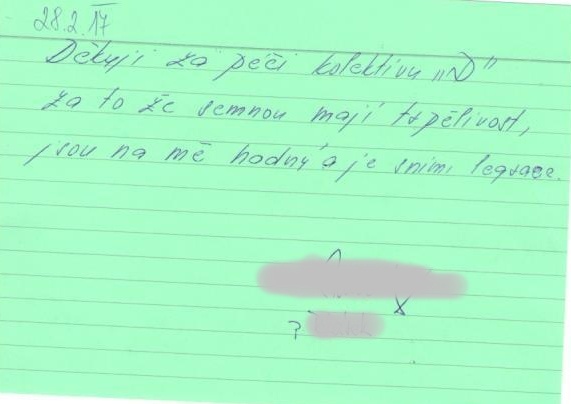 28.2.17
Děkuji za péči kolektivu „D"
za to že semnou mají trpělivost,
jsou na mě hodný a je snimi legrace.
?